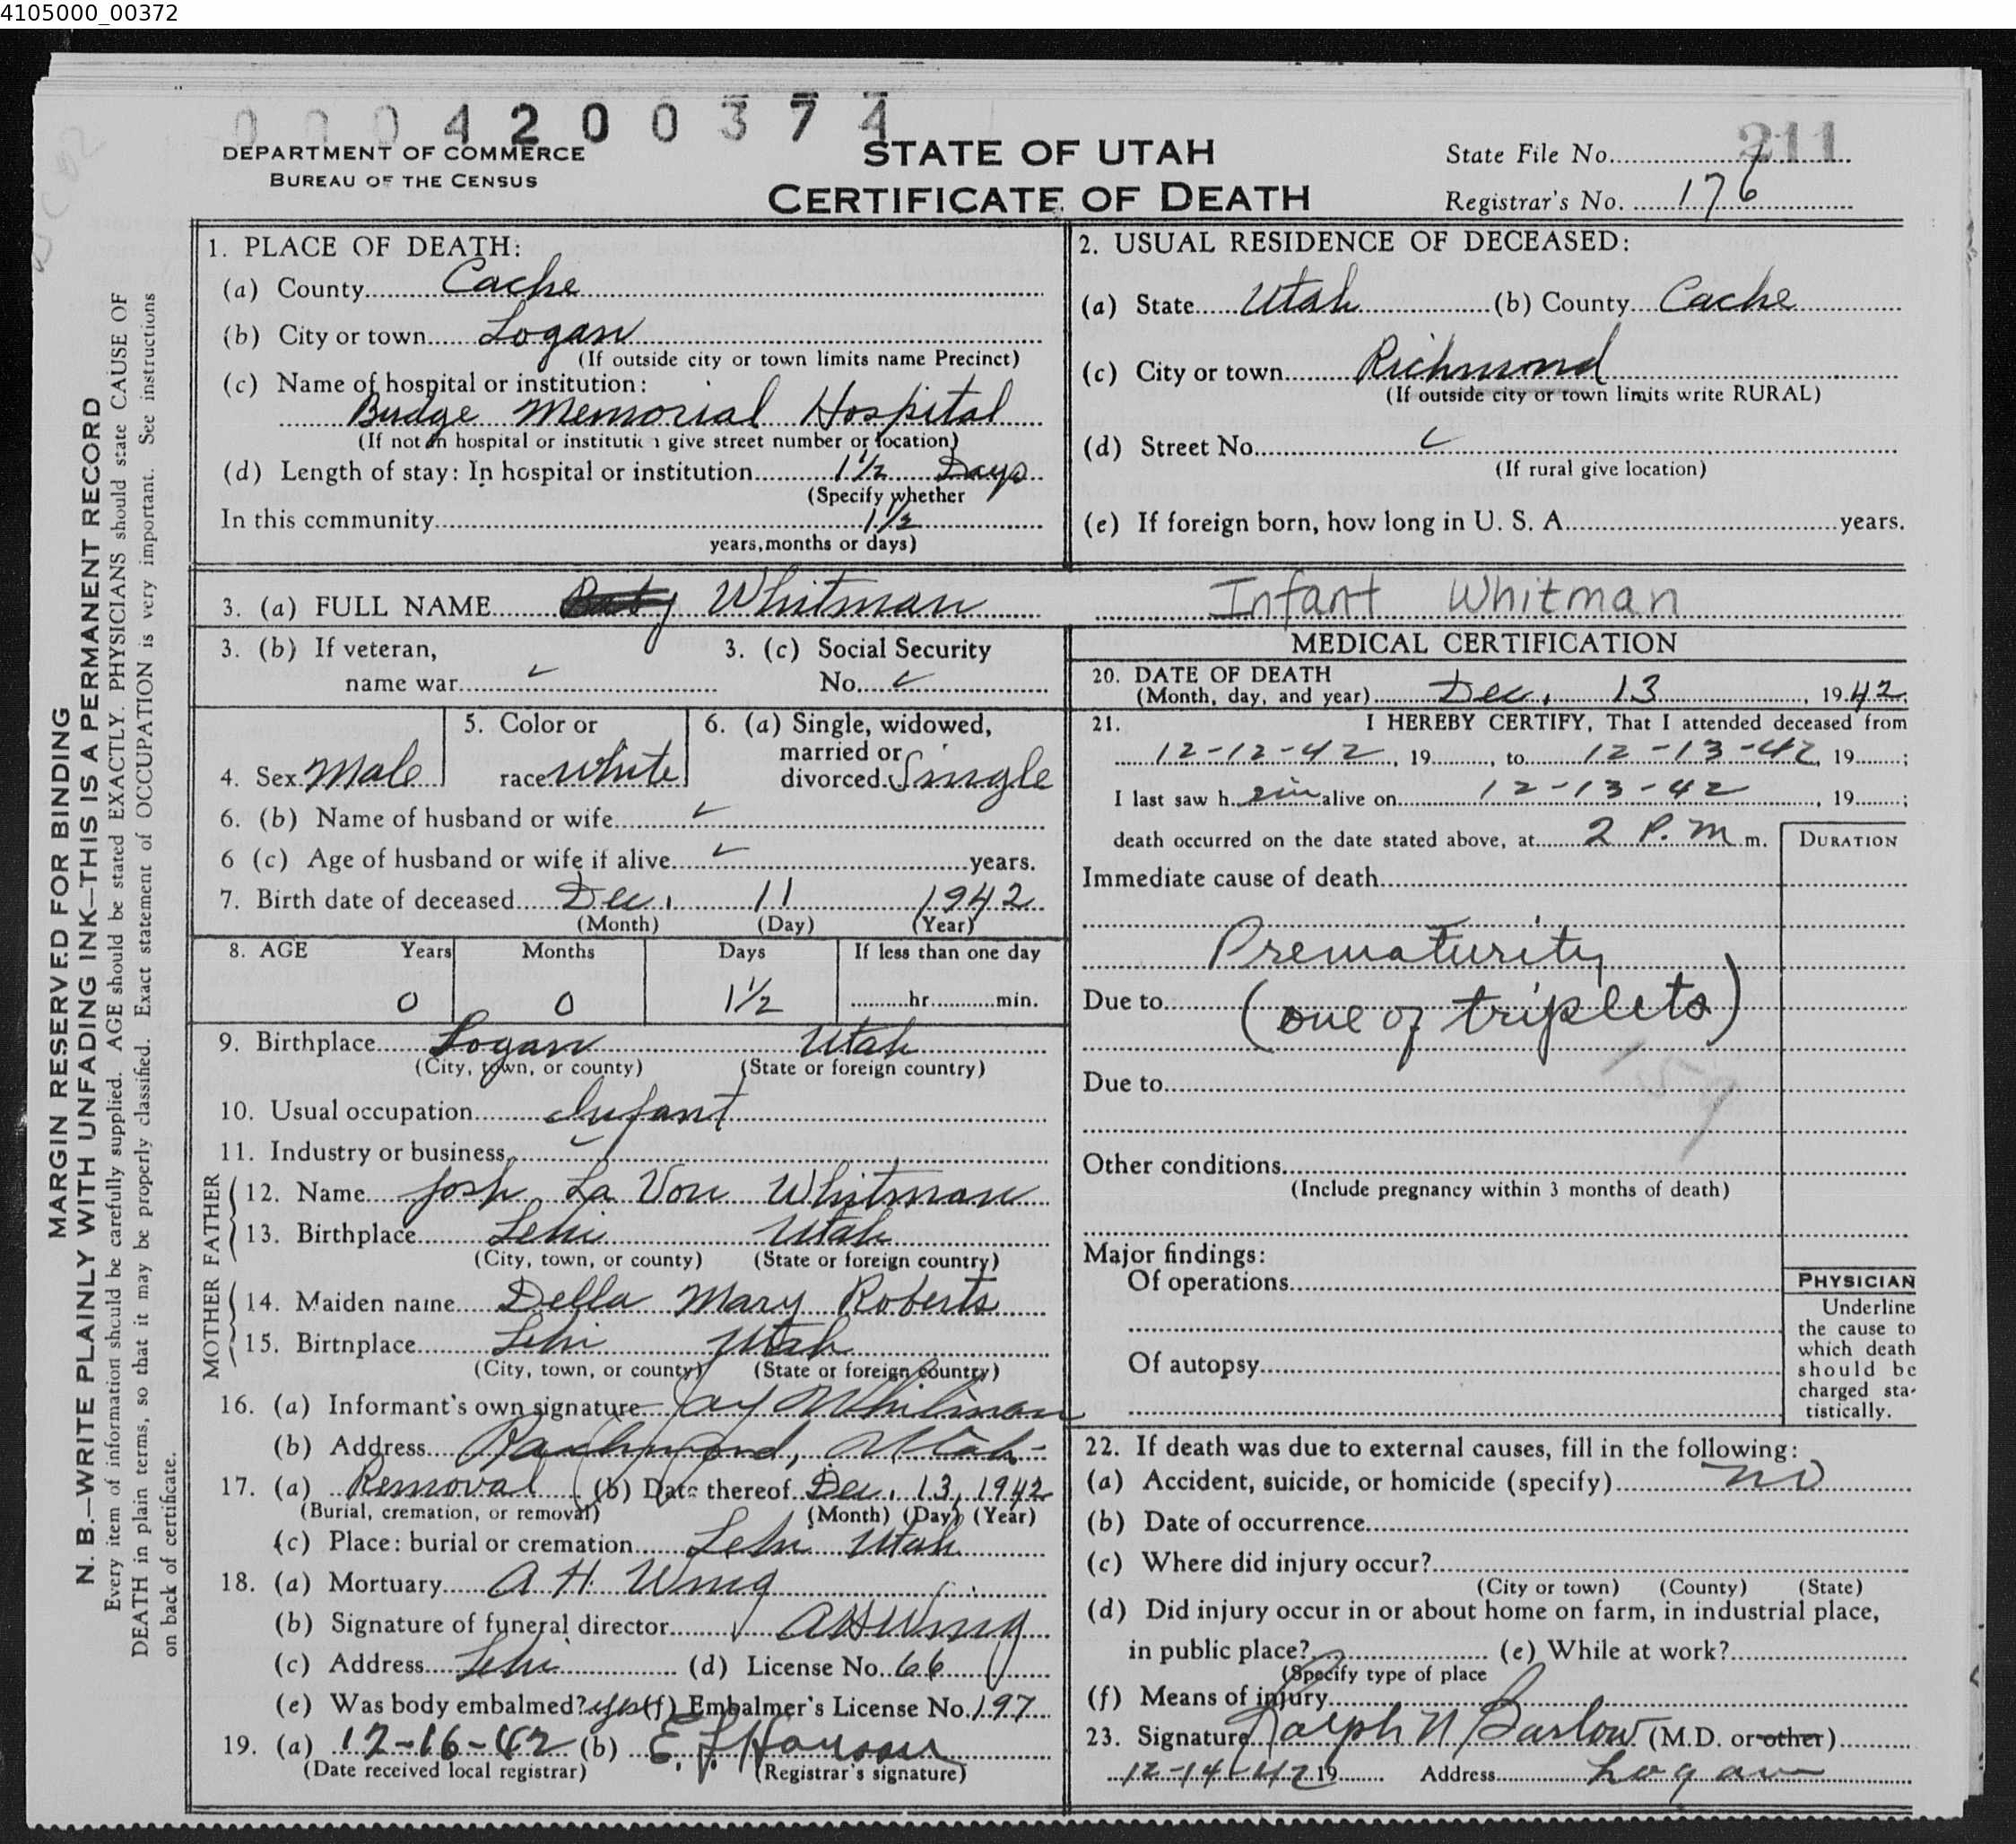 4105000_00372
0004200374
DEPARTMENT OF COMMERCE
BUREAU OF THE CENSUS
STATE OF UTAH
CERTIFICATE OF DEATH
State File No. 211
Registrar's No. 176
MARGIN RESERVED FOR BINDING
N. B.—WRITE PLAINLY WITH UNFADING INK—THIS IS A PERMANENT RECORD
Every item of information should be carefully supplied. AGE should be stated EXACTLY. PHYSICIANS should state CAUSE OF
DEATH in plain terms, so that it may be properly classified. Exact statement of OCCUPATION is very important. See instructions
on back of certificate.
1. PLACE OF DEATH:
(a) County Cache
(b) City or town Logan
(If outside city or town limits name Precinct)
(c) Name of hospital or institution:
Budge Memorial Hospital
(If not in hospital or institution give street number or location)
(d) Length of stay: In hospital or institution 1½ Days
(Specify whether
In this community 1½
years, months or days)
2. USUAL RESIDENCE OF DECEASED:
(a) State Utah (b) County Cache
(c) City or town Richmond
(If outside city or town limits write RURAL)
(d) Street No.
(If rural give location)
(e) If foreign born, how long in U. S. A. years.
3. (a) FULL NAME Baby Whitman Infant Whitman
3. (b) If veteran,
name war
3. (c) Social Security
No.
4. Sex Male
5. Color or
race White
6. (a) Single, widowed,
married or
divorced Single
6. (b) Name of husband or wife
6 (c) Age of husband or wife if alive years.
7. Birth date of deceased Dec. 11 1942
(Month) (Day) (Year)
8. AGE Years Months Days If less than one day
0 0 1½ hr. min.
9. Birthplace Logan Utah
(City, town, or county) (State or foreign country)
10. Usual occupation Infant
11. Industry or business
FATHER
12. Name Josh La Von Whitman
13. Birthplace Lehi Utah
(City, town, or county) (State or foreign country)
MOTHER
14. Maiden name Della Mary Roberts
15. Birthplace Lehi Utah
(City, town, or county) (State or foreign country)
16. (a) Informant's own signature Jay Whitman
(b) Address Richmond, Utah
17. (a) Removal (b) Date thereof Dec. 13, 1942
(Burial, cremation, or removal) (Month) (Day) (Year)
(c) Place: burial or cremation Lehi Utah
18. (a) Mortuary A H. Wing
(b) Signature of funeral director A H Wing
(c) Address Lehi (d) License No. 66
(e) Was body embalmed? yes (f) Embalmer's License No. 197
19. (a) 12-16-42 (b) E. J. Hansen
(Date received local registrar) (Registrar's signature)
MEDICAL CERTIFICATION
20. DATE OF DEATH
(Month, day, and year) Dec. 13, 1942
21. I HEREBY CERTIFY, That I attended deceased from
12-12-42, 19 , to 12-13-42, 19 ;
I last saw h im alive on 12-13-42, 19 ;
death occurred on the date stated above, at 2 P. M m.
DURATION
Immediate cause of death
Prematurity
Due to (one of triplets)
Due to
Other conditions
(Include pregnancy within 3 months of death)
Major findings:
Of operations
Of autopsy
PHYSICIAN
Underline
the cause to
which death
should be
charged sta-
tistically.
22. If death was due to external causes, fill in the following:
(a) Accident, suicide, or homicide (specify) no
(b) Date of occurrence
(c) Where did injury occur?
(City or town) (County) (State)
(d) Did injury occur in or about home on farm, in industrial place,
in public place? (e) While at work?
(Specify type of place
(f) Means of injury
23. Signature Ralph N Barlow (M.D. or other)
12-14-42 19 Address Logan